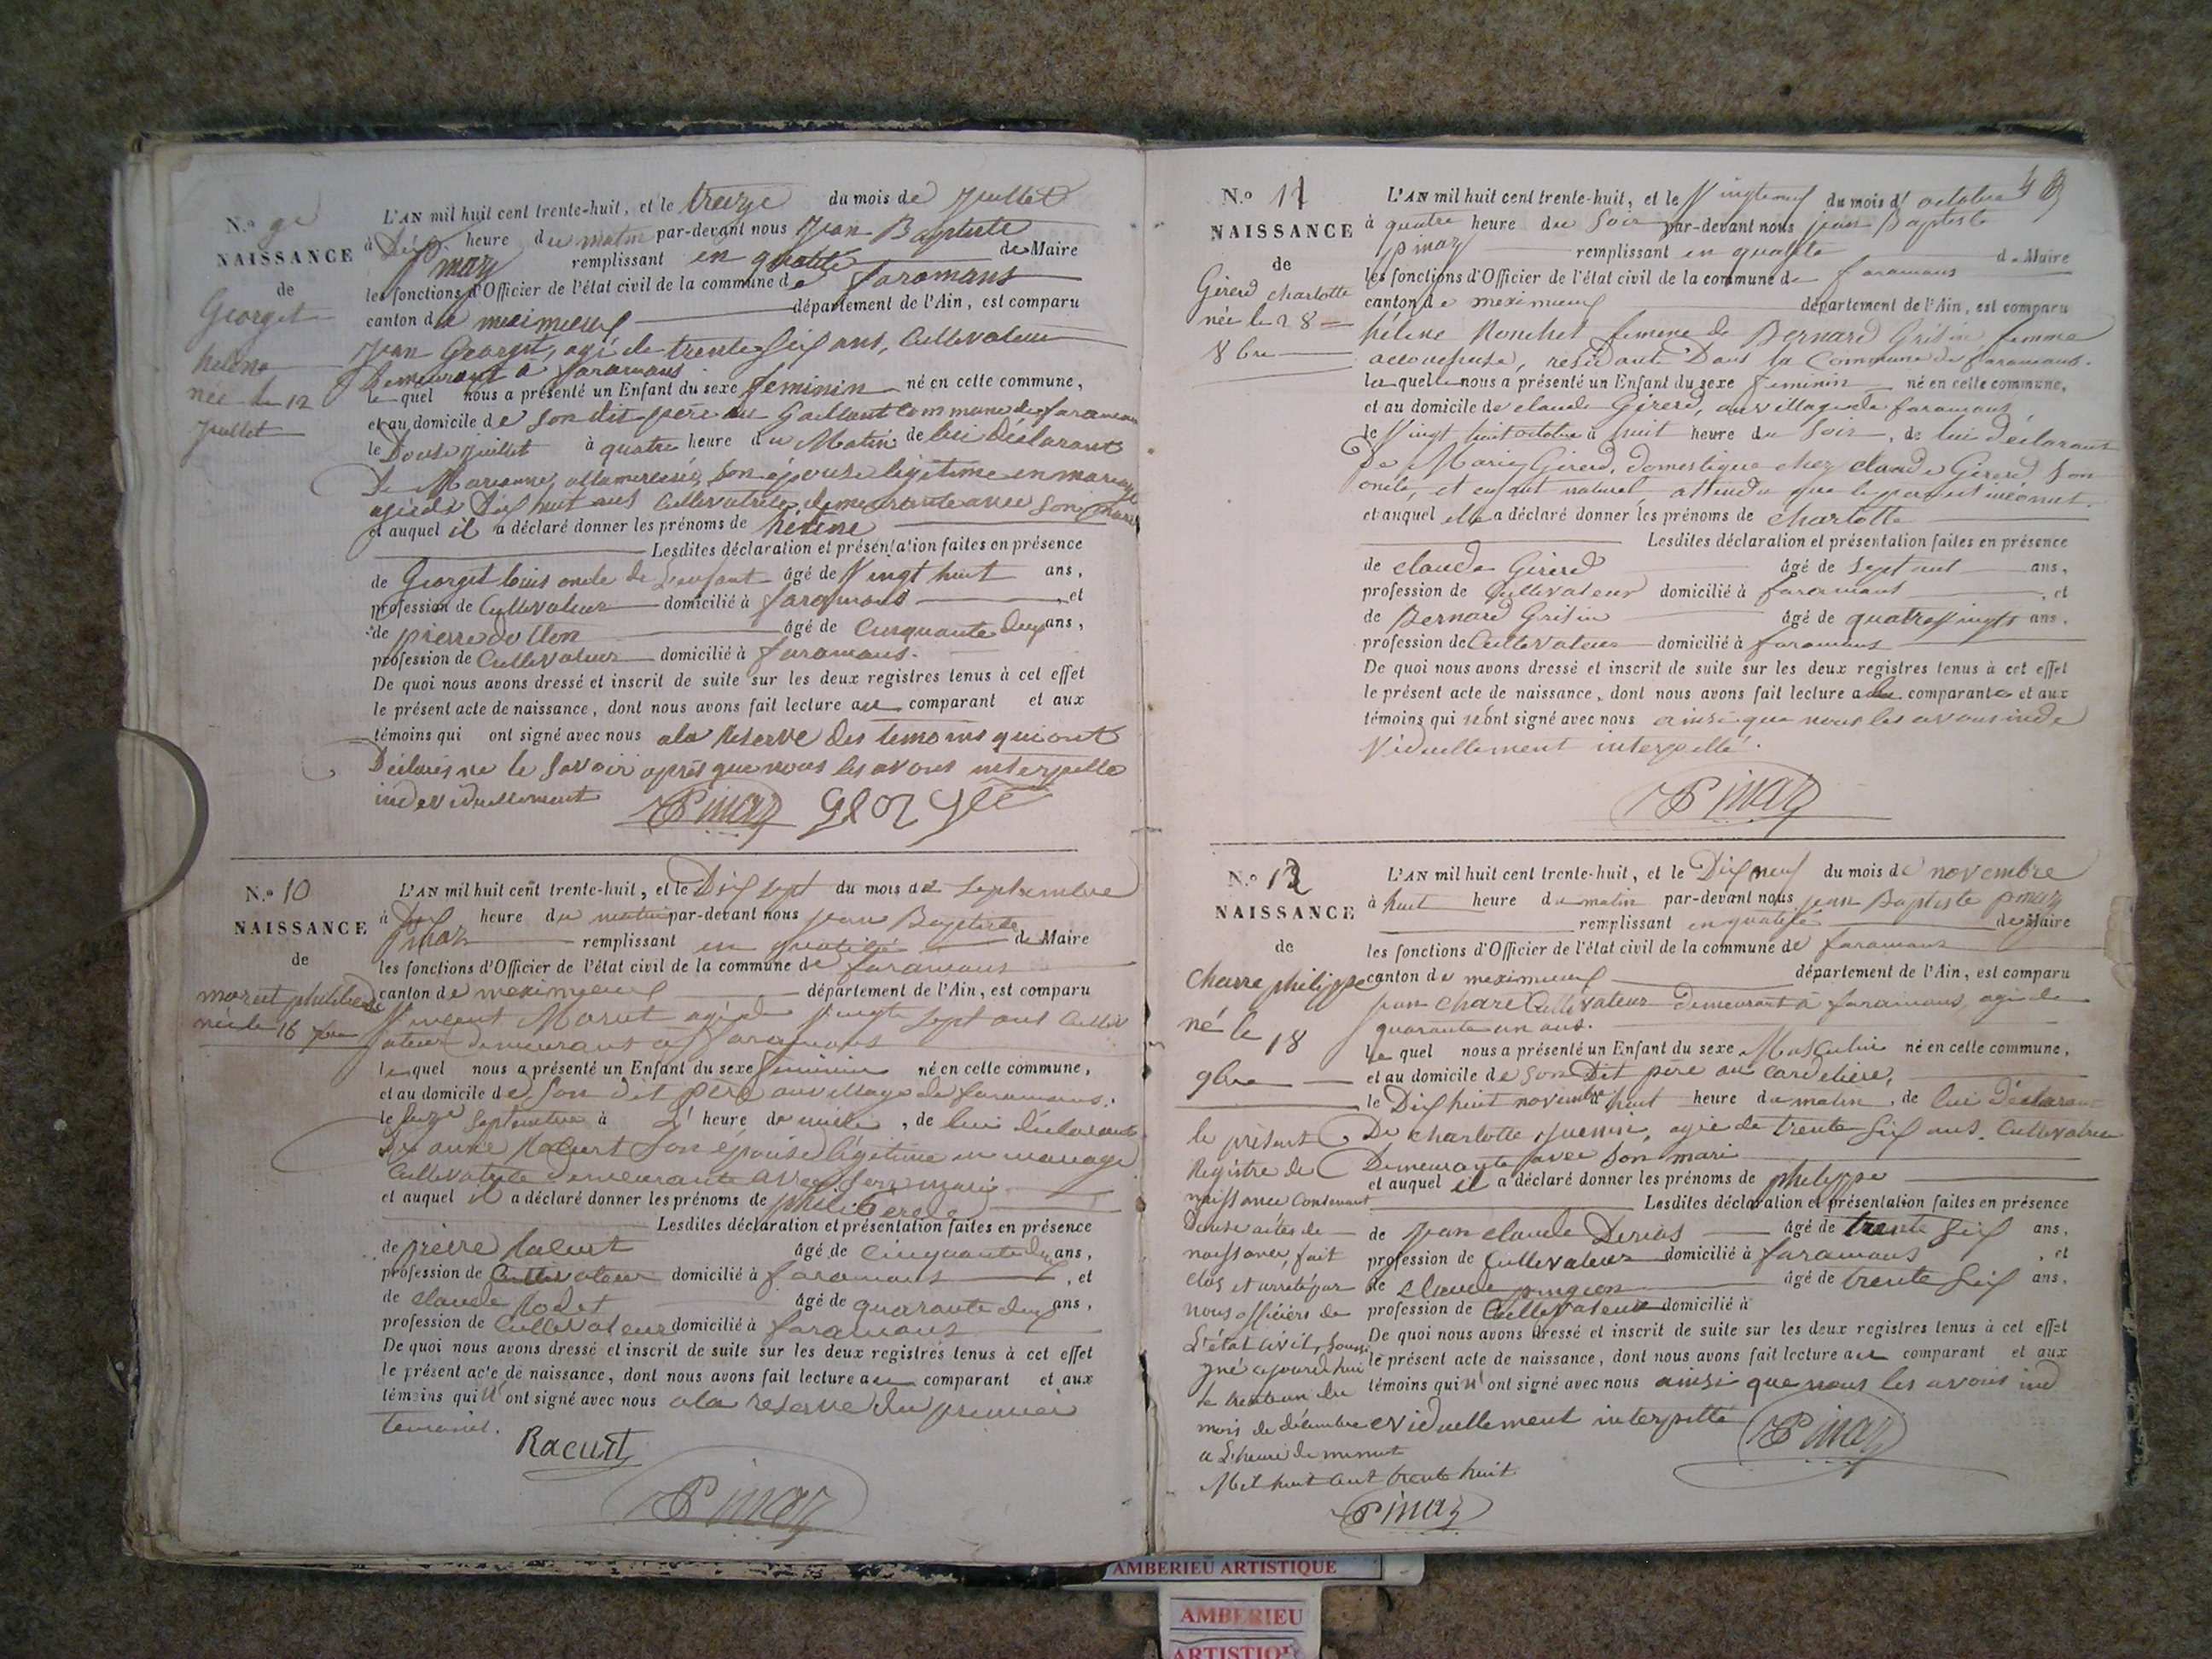 N.o 9e
NAISSANCE
de
Georget
hélène
née le 12
Juillet
L'AN mil huit cent trente-huit, et le treize du mois de Juillet
à Dix heure du matin par-devant nous Jean Baptiste
Pinaz remplissant en qualité de Maire
les fonctions d'Officier de l'état civil de la commune de faramans
canton de meximieux département de l'Ain, est comparu
Jean Georget, agé de trente six ans, Cultivateur
Demeurant à faramans
le quel nous a présenté un Enfant du sexe feminin né en cette commune,
et au domicile de son dit père au Gaillant commune de faramans
le Douse juillet à quatre heure du Matin de lui Déclarant
De Marianne son épouse légitime en mariage
agée de Dix huit ans Cultivatrice demeurante avec son mari
et auquel il a déclaré donner les prénoms de hélène
Lesdites déclaration et présentation faites en présence
de Georget louis oncle de L'enfant âgé de Vingt huit ans,
profession de Cultivateur domicilié à faramans , et
de pierre âgé de Cinquante deux ans,
profession de Cultivateur domicilié à faramans.
De quoi nous avons dressé et inscrit de suite sur les deux registres tenus à cet effet
le présent acte de naissance, dont nous avons fait lecture au comparant et aux
témoins qui ont signé avec nous a la Reserve des temoins qui ont
Déclarés ne le savoir après que nous les avons interpellé
individuellement Pinaz georget
N.o 10
NAISSANCE
de
morut philiberde
née le 16 7bre
L'AN mil huit cent trente-huit, et le Dix sept du mois de Septembre
à Dix heure du matin par-devant nous jean Baptiste
Pinaz remplissant en qualité de Maire
les fonctions d'Officier de l'état civil de la commune de faramans
canton de meximieux département de l'Ain, est comparu
Vincent Morut agé de vingt sept ans Cultiv
ateur Demeurant a faramans
le quel nous a présenté un Enfant du sexe feminin né en cette commune,
et au domicile de son dit père au village de faramans.
le seize Septembre à heure de , de lui Déclarant
De anne Racurt son épouse légitime en mariage
Cultivatrice Demeurante avec son mari
et auquel il a déclaré donner les prénoms de philiberde
Lesdites déclaration et présentation faites en présence
de pierre Racurt âgé de Cinquante ans,
profession de Cultivateur domicilié à faramans , et
de claude Rodet âgé de quarante deux ans,
profession de Cultivateur domicilié à faramans
De quoi nous avons dressé et inscrit de suite sur les deux registres tenus à cet effet
le présent acte de naissance, dont nous avons fait lecture au comparant et aux
témoins qui n'ont signé avec nous a la reserve du premier
Temoint.
Racurt
Pinaz
N.o 11
NAISSANCE
de
Girerd charlotte
née le 28
8bre
L'AN mil huit cent trente-huit, et le Vingt neuf du mois d'octobre
à quatre heure du Soir par-devant nous jean Baptiste
pinaz remplissant en qualité de Maire
les fonctions d'Officier de l'état civil de la commune de faramans
canton de meximieux département de l'Ain, est comparu
hélène Ronchet femme de Bernard Grisin femme
accoucheuse, residante Dans la Commune de faramans.
la quelle nous a présenté un Enfant du sexe feminin né en cette commune,
et au domicile de claude Girerd, au village de faramans
le Vingt huit octobre à huit heure du Soir, de lui déclarant
De Marie Girerd, domestique chez claude Girerd son
oncle, et enfant naturel attendu que le père est inconnut.
et auquel elle a déclaré donner les prénoms de charlotte
Lesdites déclaration et présentation faites en présence
de claude Girerd âgé de ans,
profession de Cultivateur domicilié à faramans , et
de Bernard Grisin âgé de quatre vingts ans.
profession de Cultivateur domicilié à faramans
De quoi nous avons dressé et inscrit de suite sur les deux registres tenus à cet effet
le présent acte de naissance, dont nous avons fait lecture a la comparante et aux
témoins qui n'ont signé avec nous ainsi que nous les avons inde
viduellement interpellé.
Pinaz
N.o 12
NAISSANCE
de
Charre philippe
né le 18
9bre
L'AN mil huit cent trente-huit, et le Dix neuf du mois de novembre
à huit heure du matin par-devant nous jean Baptiste pinaz
remplissant en qualité de Maire
les fonctions d'Officier de l'état civil de la commune de faramans
canton de meximieux département de l'Ain, est comparu
jean charre Cultivateur Demeurant a faramans, agé de
quarante un ans.
le quel nous a présenté un Enfant du sexe Masculin né en cette commune,
et au domicile de son Dit père au cordeliere,
le Dix huit novembre à huit heure du matin, de lui déclarant
De charlotte , agée de trente six ans. Cultivatrice
Demeurante avec son mari
et auquel il a déclaré donner les prénoms de philippe
Lesdites déclaration et présentation faites en présence
de Jean claude âgé de trente six ans,
profession de Cultivateur domicilié à faramans , et
de claude âgé de trente six ans.
profession de Cultivateur domicilié à
De quoi nous avons dressé et inscrit de suite sur les deux registres tenus à cet effet
le présent acte de naissance, dont nous avons fait lecture au comparant et aux
témoins qui n'ont signé avec nous ainsi que nous les avons ind
eviduellement interpellé Pinaz
le présent
Registre de
naissance Contenant
Douse actes de
naissance, fait
clos et arreté par
nous officiers de
L'état civil, soussi
gné aujourd'hui
le trente un du
mois de décembre
a L'heure de minuit
Mil huit cent trente huit
Pinaz
AMBERIEU ARTISTIQUE
AMBERIEU
ARTISTIQUE